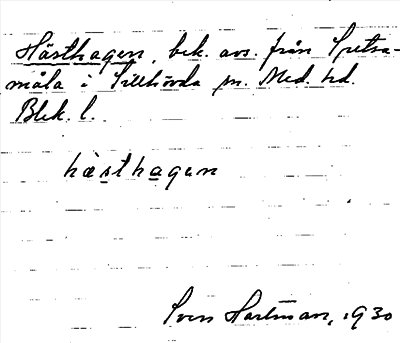 Hästhagen, bek. avs. från Spetsa-
måla i Sillhövda sn. Med. hd.
Blek. l.
hästhagen
Sven Hartman, 1930